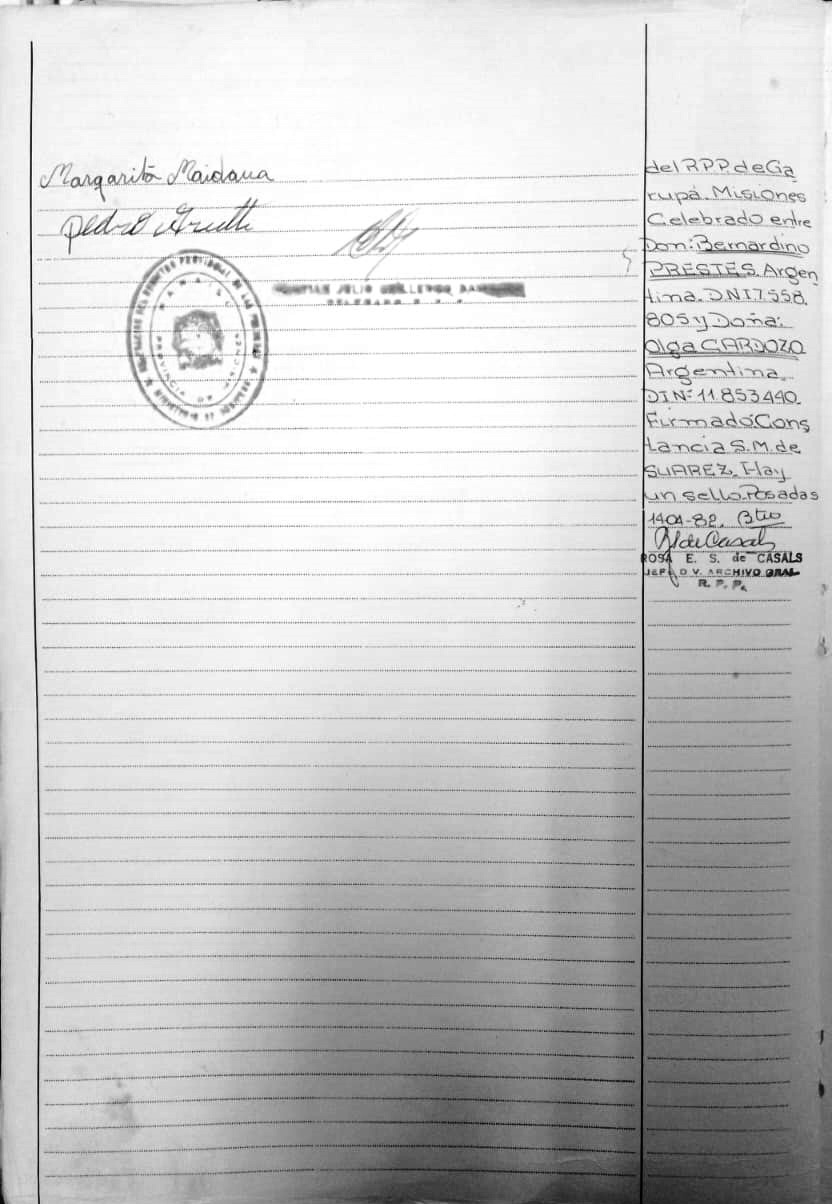 Margarita Maidana
Pedro
PROVINCIA DE MISIONES
JULIO GUILLERMO
DELEGADO R. P. P.
del R.P.P. de Ga
rupá. Misiones
Celebrado entre
Don: Bernardino
PRESTES. Argen
tina. DNI 7.558.
805 y Doña:
Olga CARDOZO
Argentina.
DIN: 11.853440.
Firmado: Cons
tancia S.M. de
SUAREZ. Hay
un sello. Posadas
de Casals
ROSA E. S. de CASALS
JEF. DIV. ARCHIVO GRAL
R. P. P.